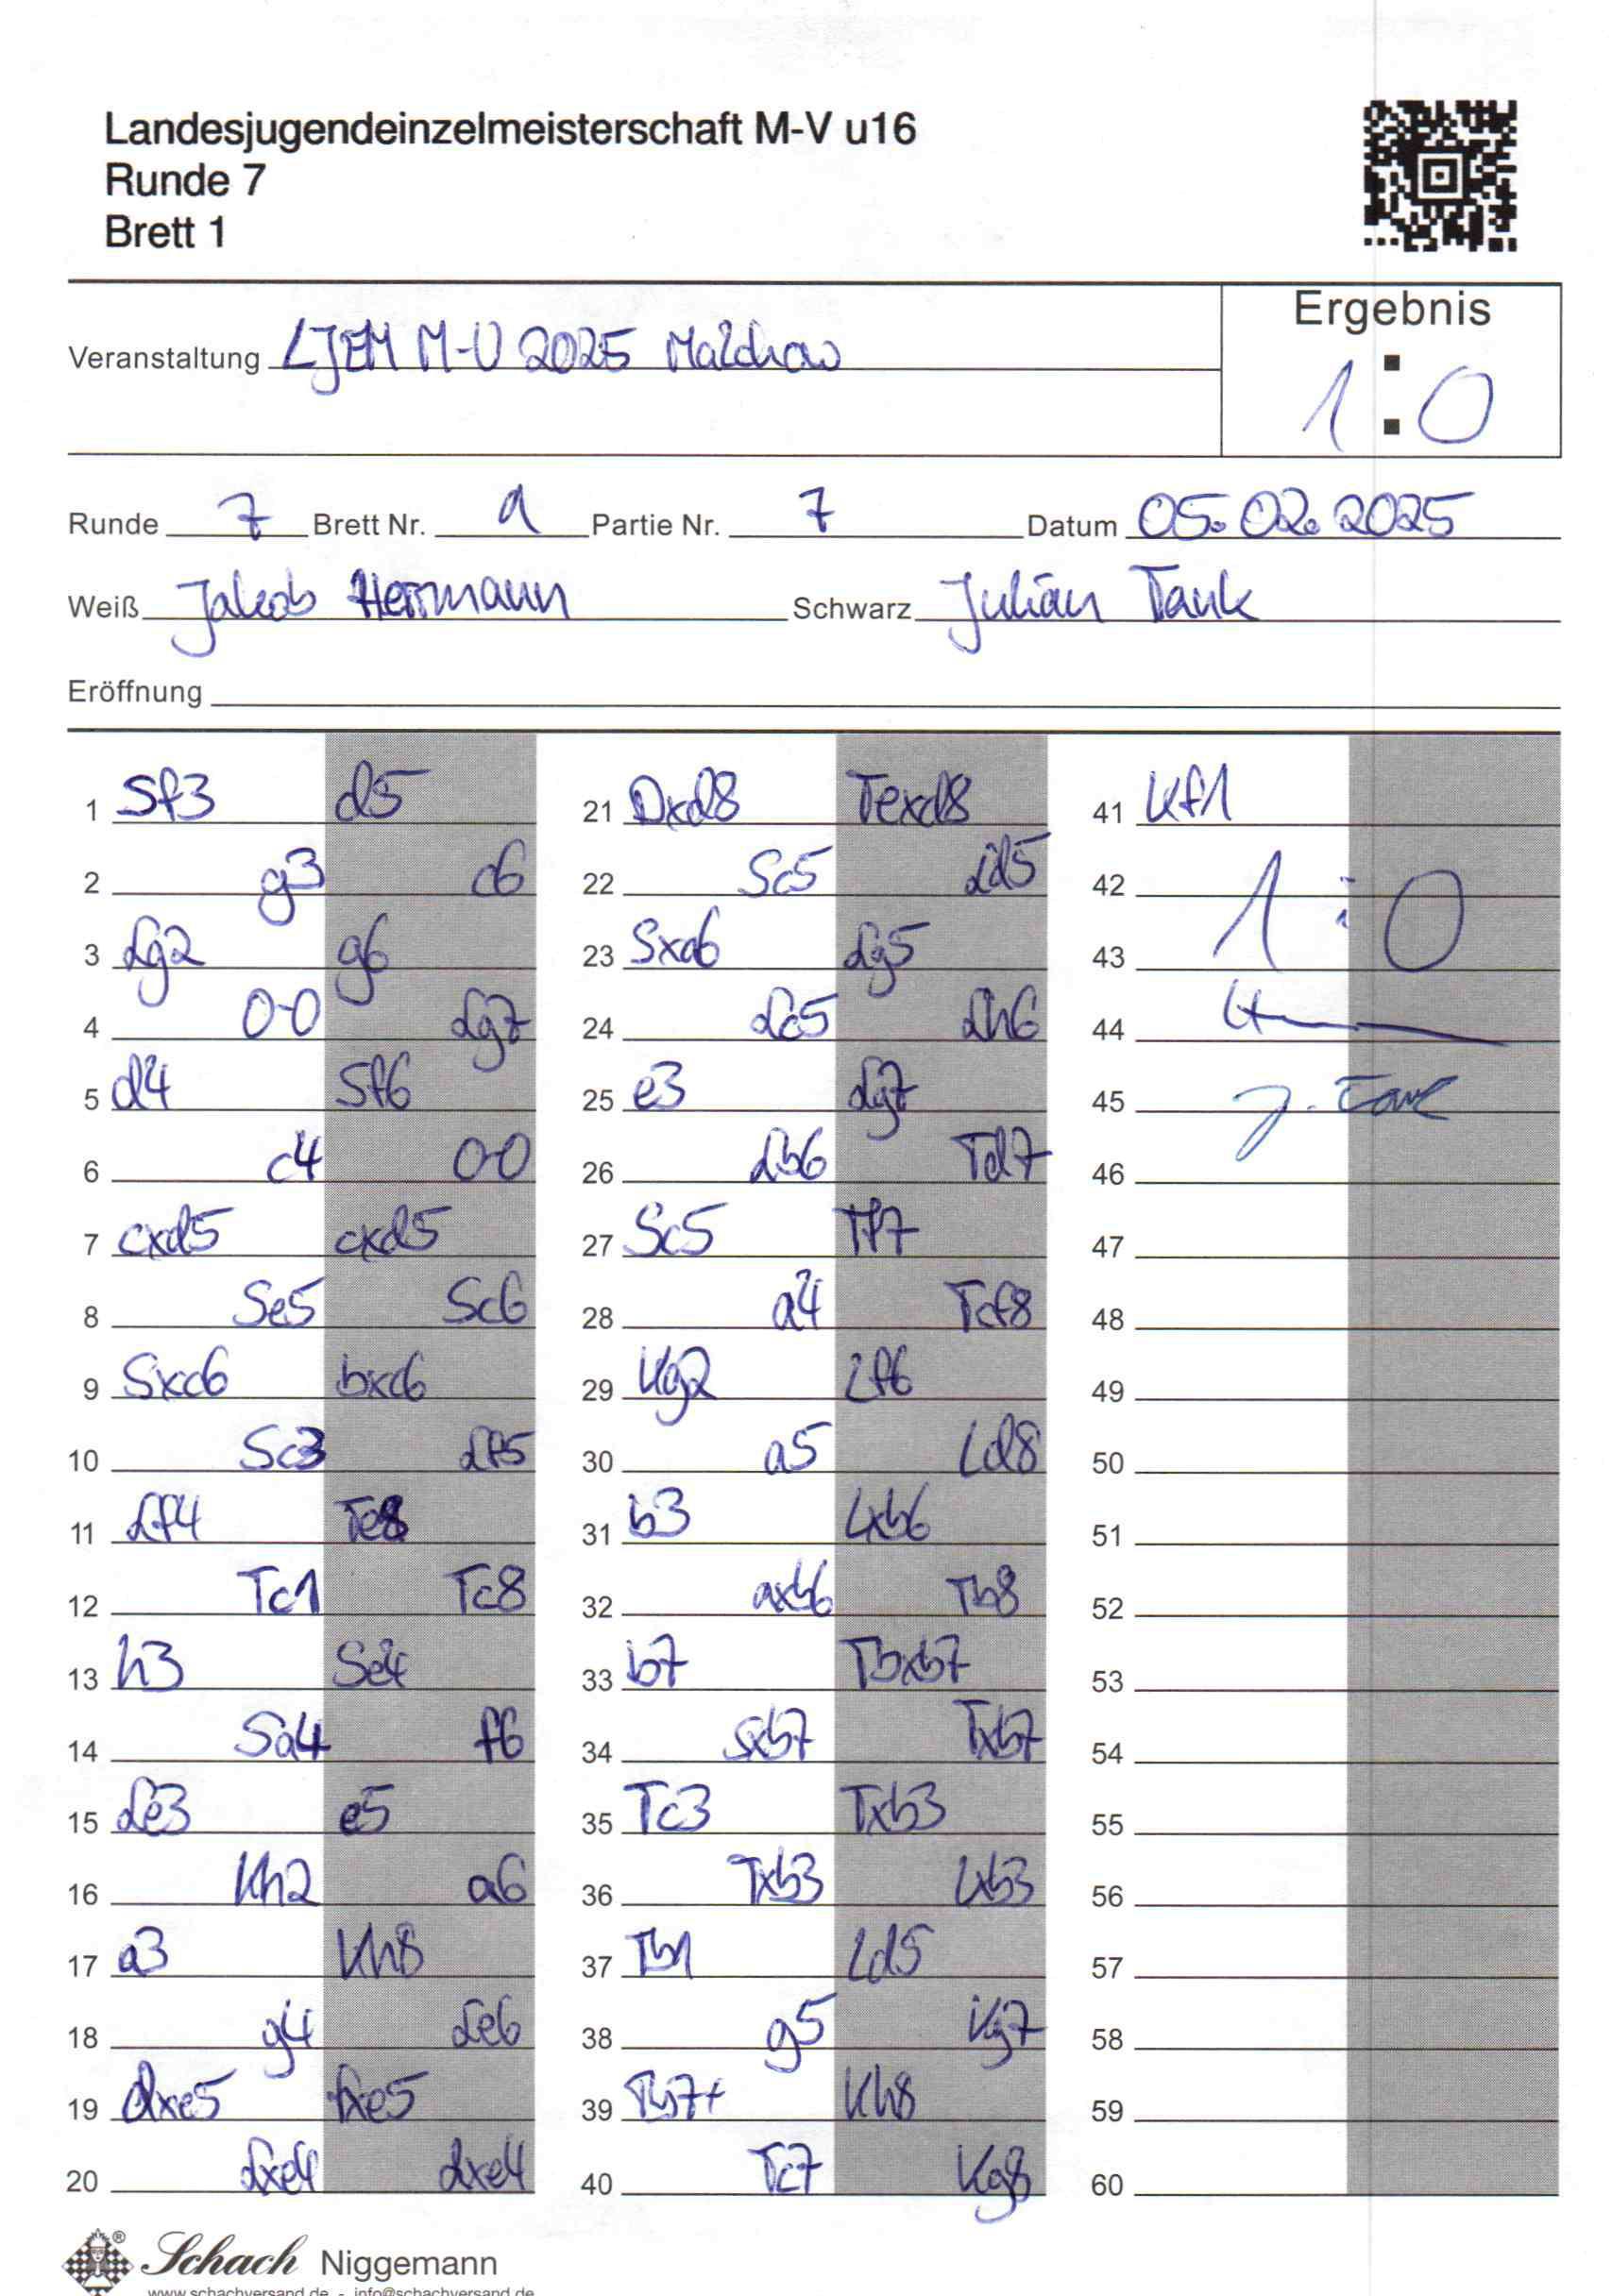 Landesjugendeinzelmeisterschaft M-V u16
Runde 7
Brett 1
Ergebnis
1:0
Veranstaltung LJEM M-V 2025 Malchow
Runde 7 Brett Nr. 1 Partie Nr. 7 Datum 05.02.2025
Weiß Jakob Herrmann Schwarz Julian Tank
Eröffnung
1 Sf3 d5
2 g3 c6
3 Lg2 g6
4 0-0 Lg7
5 d4 Sf6
6 c4 0-0
7 cxd5 cxd5
8 Se5 Sc6
9 Sxc6 bxc6
10 Sc3 Lf5
11 Lf4 Te8
12 Tc1 Tc8
13 h3 Se4
14 Sa4 f6
15 Le3 e5
16 Kh2 a6
17 a3 Kh8
18 g4 Le6
19 dxe5 fxe5
20 Lxe4 dxe4
21 Dxd8 Texd8
22 Sc5 Ld5
23 Sxa6 Lg5
24 Lc5 Lh6
25 e3 Lg7
26 Lb6 Td7
27 Sc5 Tf7
28 a4 Tcf8
29 Kg2 Lf6
30 a5 Ld8
31 b3 Lxb6
32 axb6 Tb8
33 b7 Tbxb7
34 Sxb7 Txb7
35 Tc3 Txb3
36 Txb3 Lxb3
37 Tb1 Ld5
38 g5 Kg7
39 Tb7+ Kh8
40 Tc7 Kg8
41 Kf1
42 1:0
43
44
45 J. Tank
46
47
48
49
50
51
52
53
54
55
56
57
58
59
60
Schach Niggemann
www.schachversand.de - info@schachversand.de